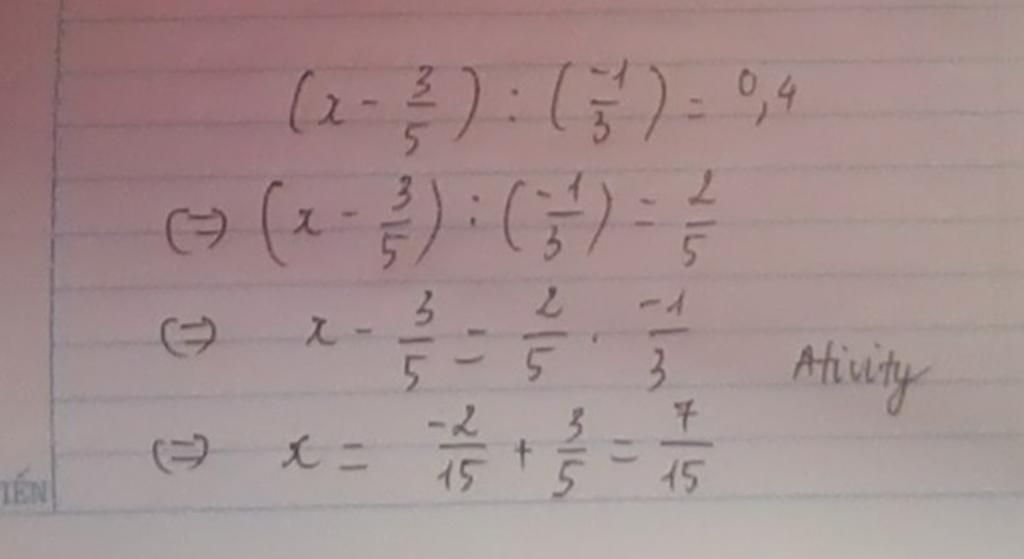 (x - 3/5) : (-1/3) = 0,4
⇔ (x - 3/5) : (-1/3) = 2/5
⇔ x - 3/5 = 2/5 . -1/3
Ativity
⇔ x = -2/15 + 3/5 = 7/15
TIẾN